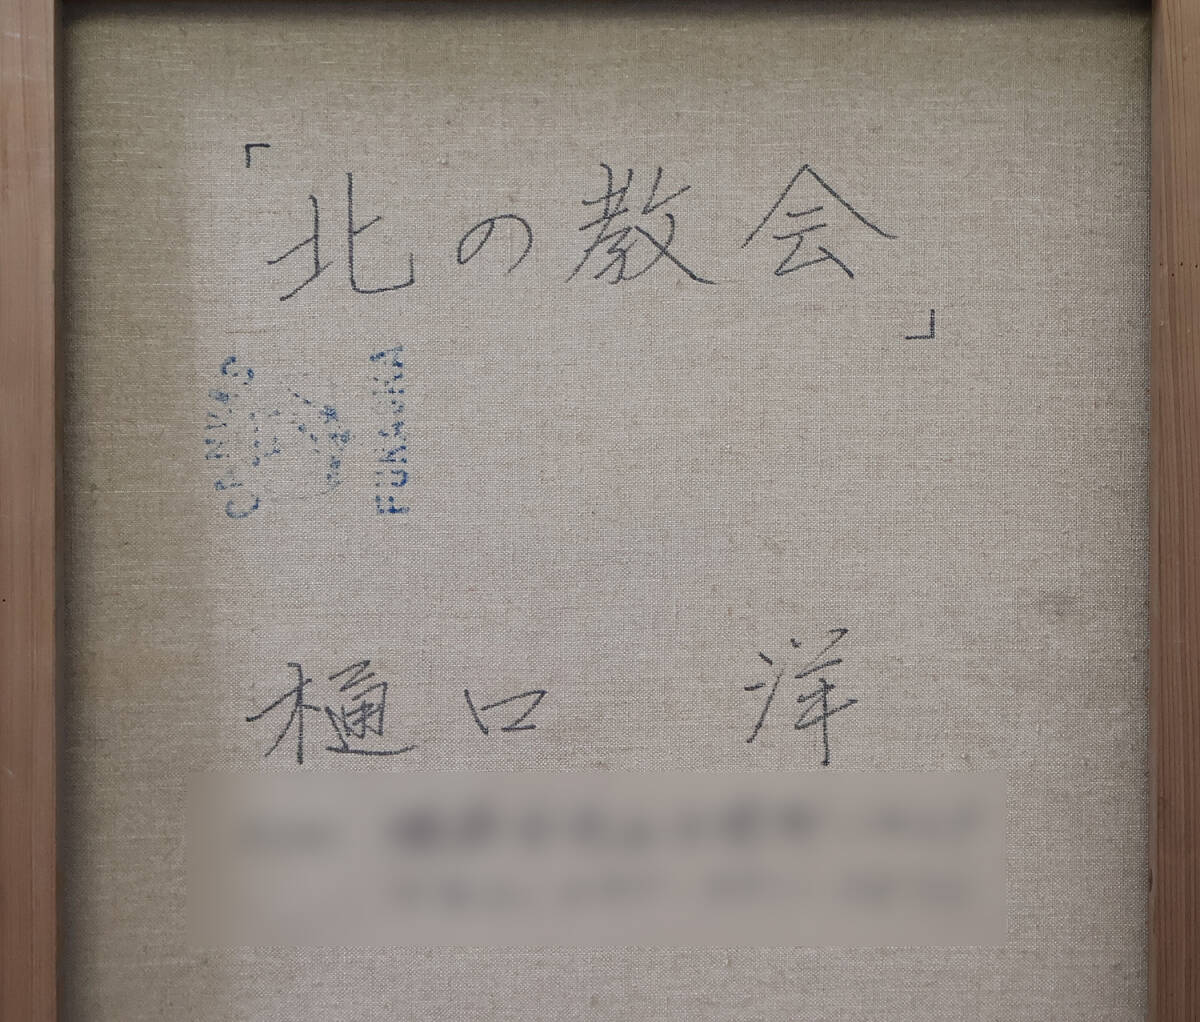 「北の教会」
CANVAS
FUKUOKA
樋口 洋